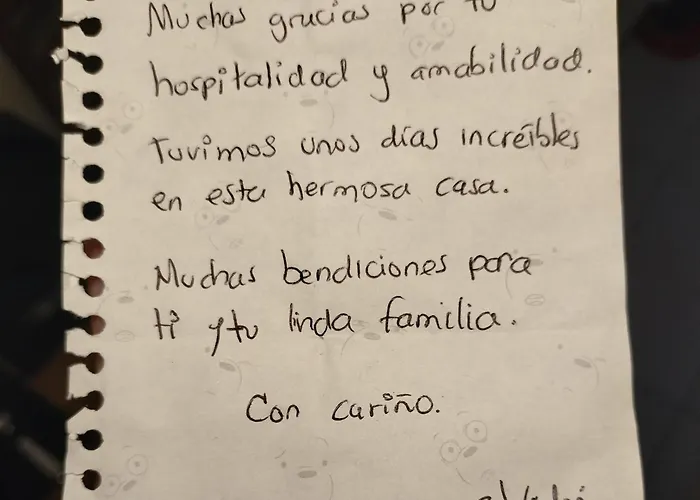 Muchas gracias por tu
hospitalidad y amabilidad.
Tuvimos unos días increíbles
en esta hermosa casa.
Muchas bendiciones para
ti y tu linda familia.
Con cariño.